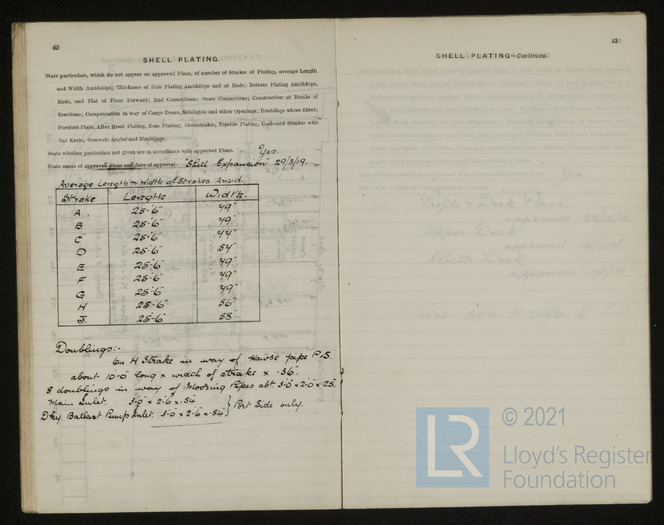 42
SHELL PLATING.
State particulars, which do not appear on approved Plans, of number of Strakes of Plating, average Length
and Width Amidships; Thickness of Side Plating Amidships and at Ends; Bottom Plating Amidships,
Ends, and Flat of Floor Forward; End Connections; Seam Connections; Construction at Breaks of
Erections; Compensation in way of Cargo Doors, Sidelights and other Openings; Doublings where fitted;
Forefoot Plate, After Hood Plating, Boss Plating; Sheerstrakes, Topside Plating, Garboard Strakes with
Bar Keels; Gunwale Angles and Mouldings.
State whether particulars not given are in accordance with approved Plans. "Yes.
State name of approved Plans and date of approval. "Shell Expansion" 29/3/19.
Average Length & Width of Strakes Amid.
Strake Length Width.
A. 25'-6" 49"
B 25'-6" 49"
C 25'-6" 44"
D 25'-6" 54"
E 25'-6" 49"
F 25'-6" 49"
G 25'-6" 49"
H 25'-6" 56"
J. 25'-6" 58"
Doublings:-
On H Strake in way of Hawse pipe P.S.
about 10'-0" long x width of strake x .36".
8 doublings in way of Mooring Pipes abt 3'-0" x 2'-0" x .25.
Main Inlet. 3'-0" x 2'-6" x .54"
Dkey. Ballast Pump Inlet. 3'-0" x 2'-6" x .54" } Port Side only.
43
SHELL PLATING—Continued.
© 2021
LR
Lloyd's Register
Foundation